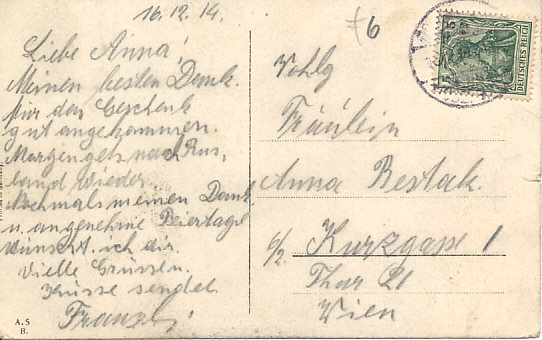 16.12.14.
Liebe Anna!
Meinen besten Dank.
für das Geschenk
gut angekommen.
Morgen gehts nach Rus,
land wieder.
Nochmals meinen Dank
u. angenehme Feiertage
wünscht ich dir.
Vielle Grüssen.
Küsse sendet
Franzl
A.S
B.
76
DEUTSCHES REICH
5
Wohlg
Fräulein
Anna Bestak.
b/z Kurzgasse 1
Thür 21
Wien